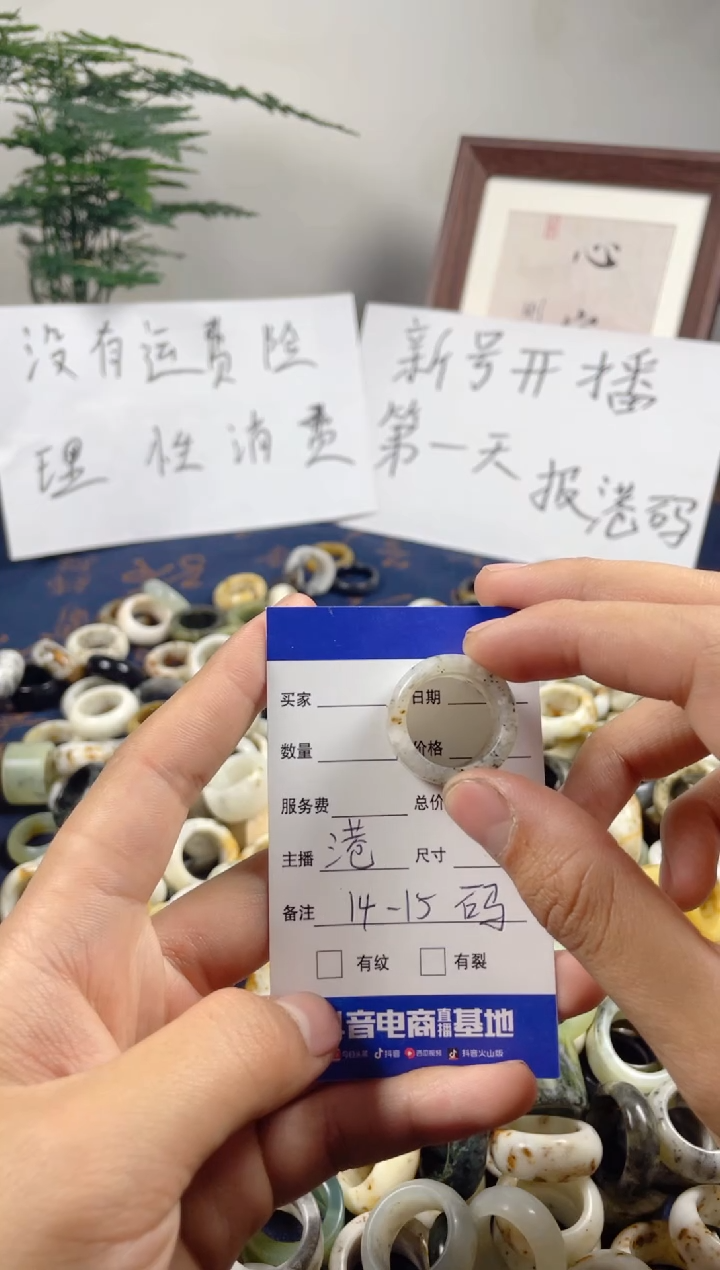 心
没有运费险
理性消费
新号开播
第一天
报港码
买家
日期
数量
价格
服务费
总价
主播 港
尺寸
备注 14-15码
有纹
有裂
音电商直播基地
抖音
西瓜视频
抖音火山版